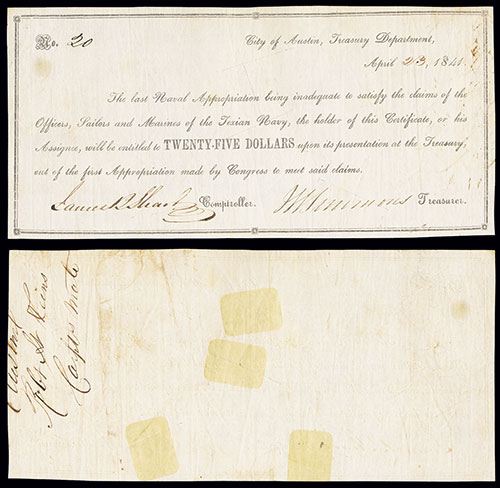 No. 20
City of Austin, Treasury Department,
April 23, 1841.
The last Naval Appropriation being inadequate to satisfy the claims of the
Officers, Sailors and Marines of the Texian Navy, the holder of this Certificate, or his
Assignee, will be entitled to TWENTY-FIVE DOLLARS upon its presentation at the Treasury,
out of the first Appropriation made by Congress to meet said claims.
James B Shaw Comptroller. Simmons Treasurer.
Carps mate